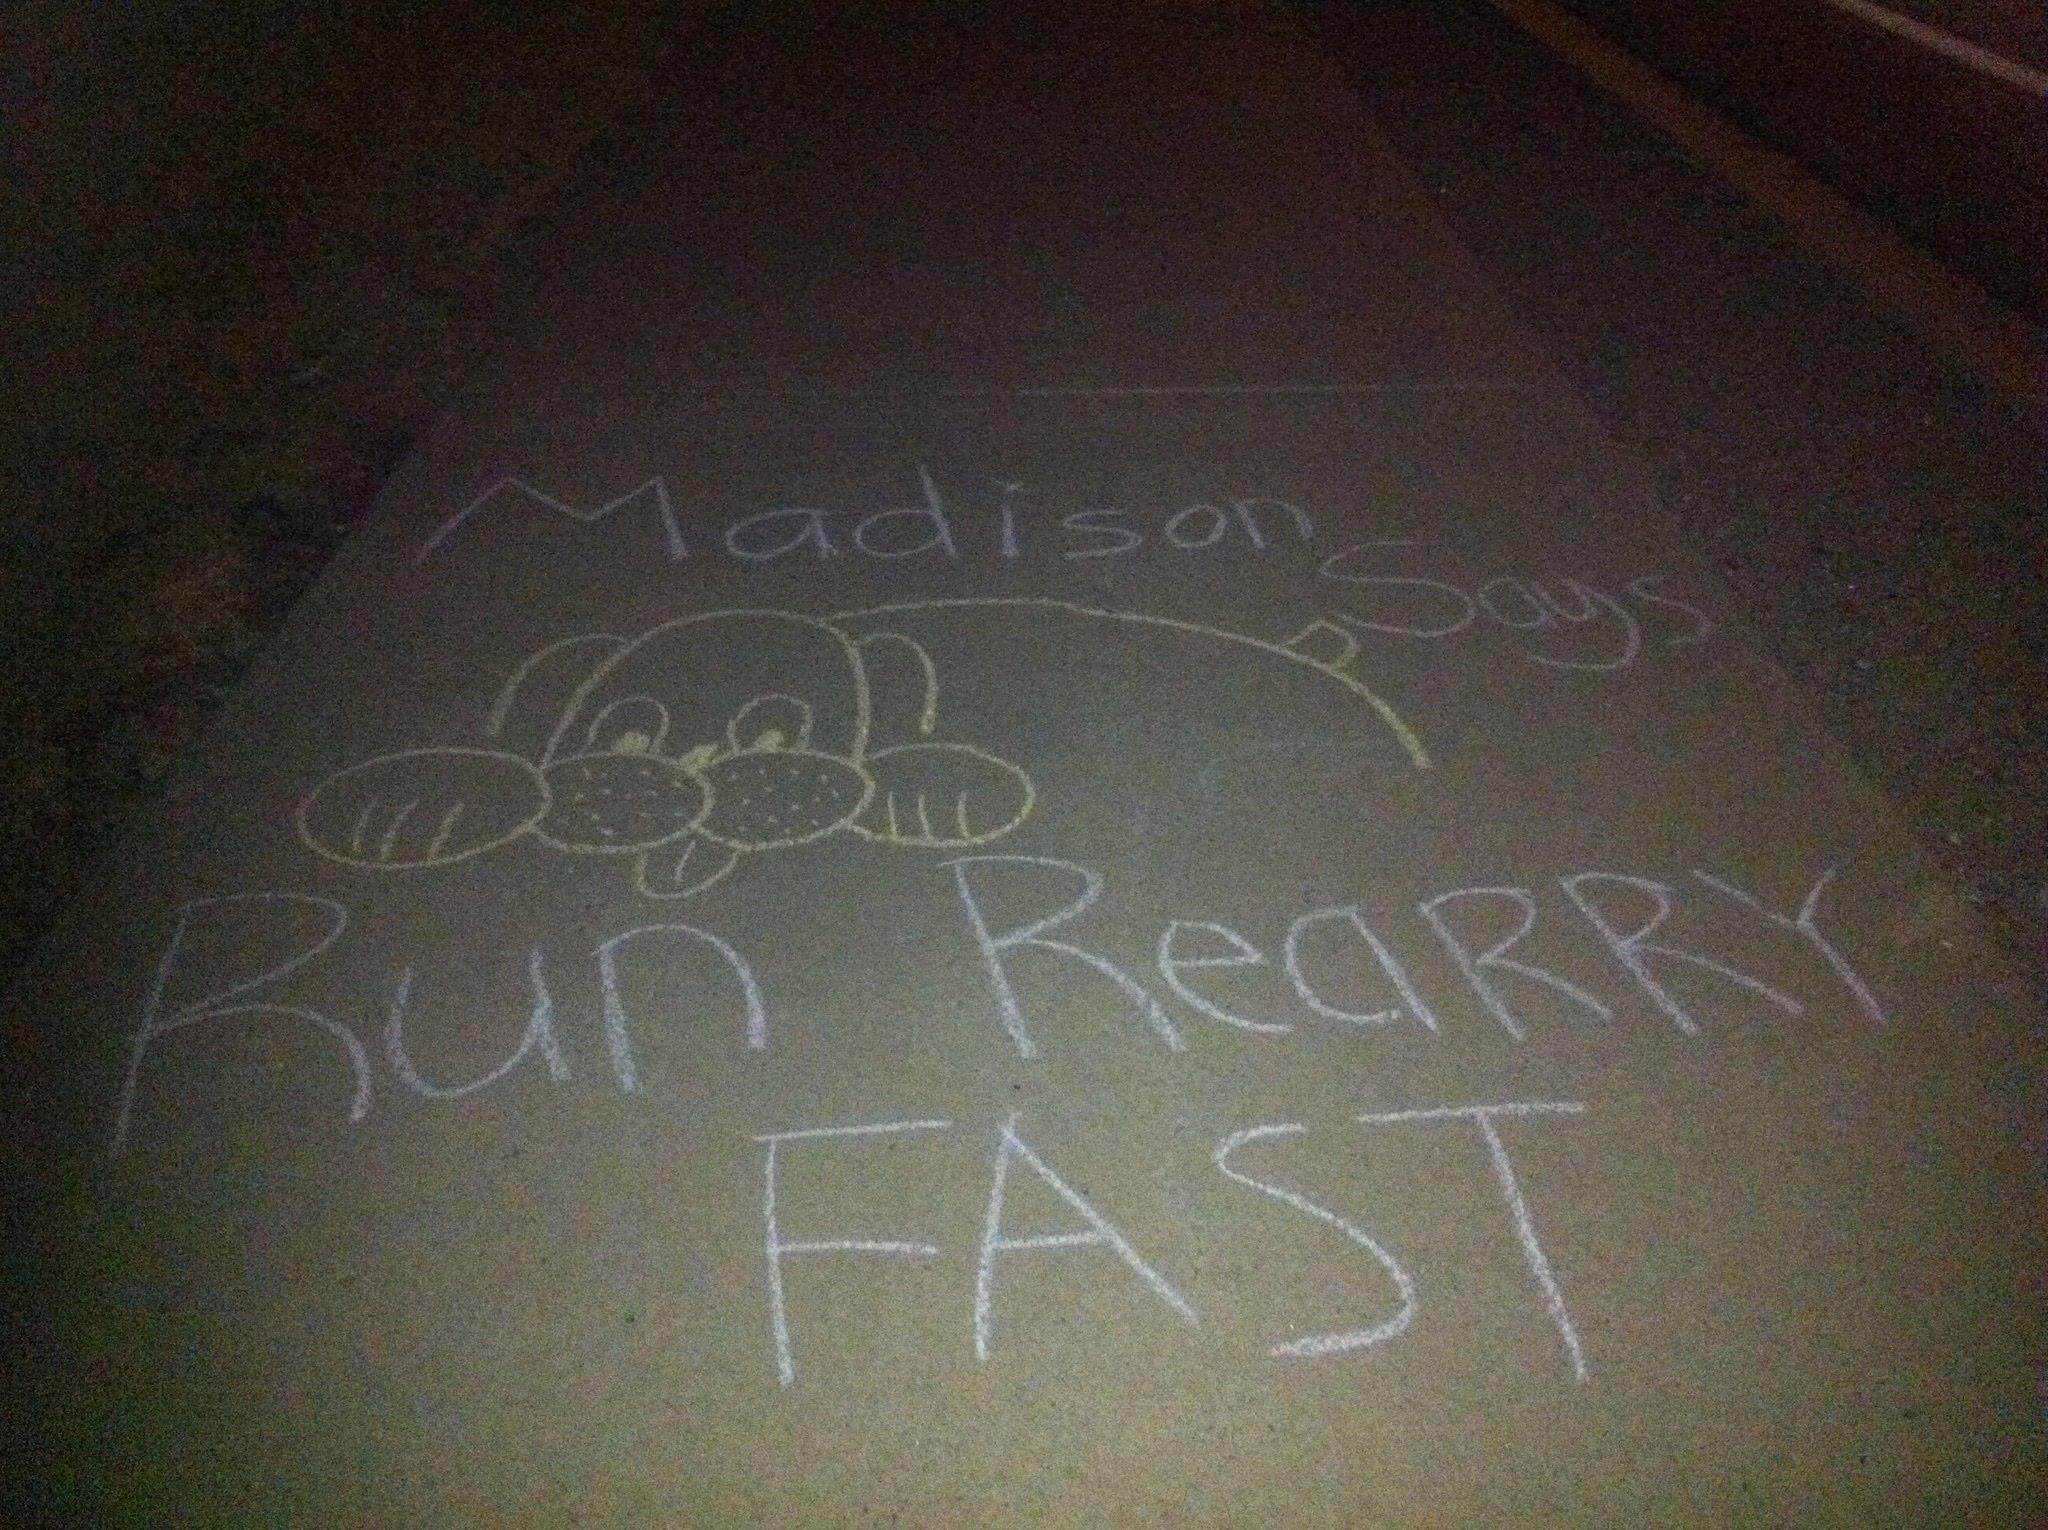 Madison
Says
Run ReaRRY
FAST